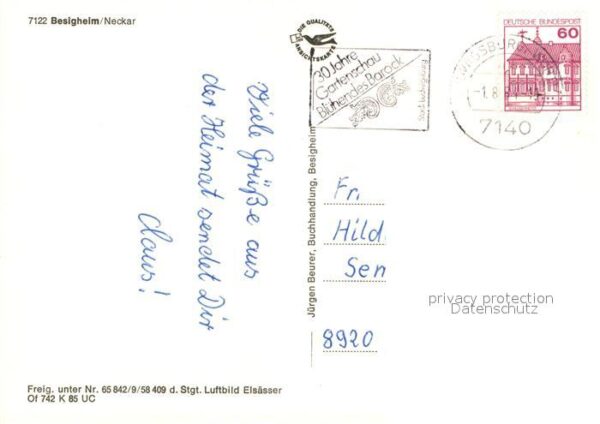 7122 Besigheim/Neckar
Viele Grüße aus
der Heimat sendet Dir
Claus!
Freig. unter Nr. 65 842/9/58 409 d. Stgt. Luftbild Elsässer
Of 742 K 85 UC
Jürgen Beurer, Buchhandlung, Besigheim
DIE QUALITÄTS
ANSICHTSKARTE
30 Jahre
Gartenschau
Blühendes Barock
Stadt Ludwigsburg
DEUTSCHE BUNDESPOST
60
-1.8
7140
Fr.
Hild
Sen
8920
privacy protection
Datenschutz